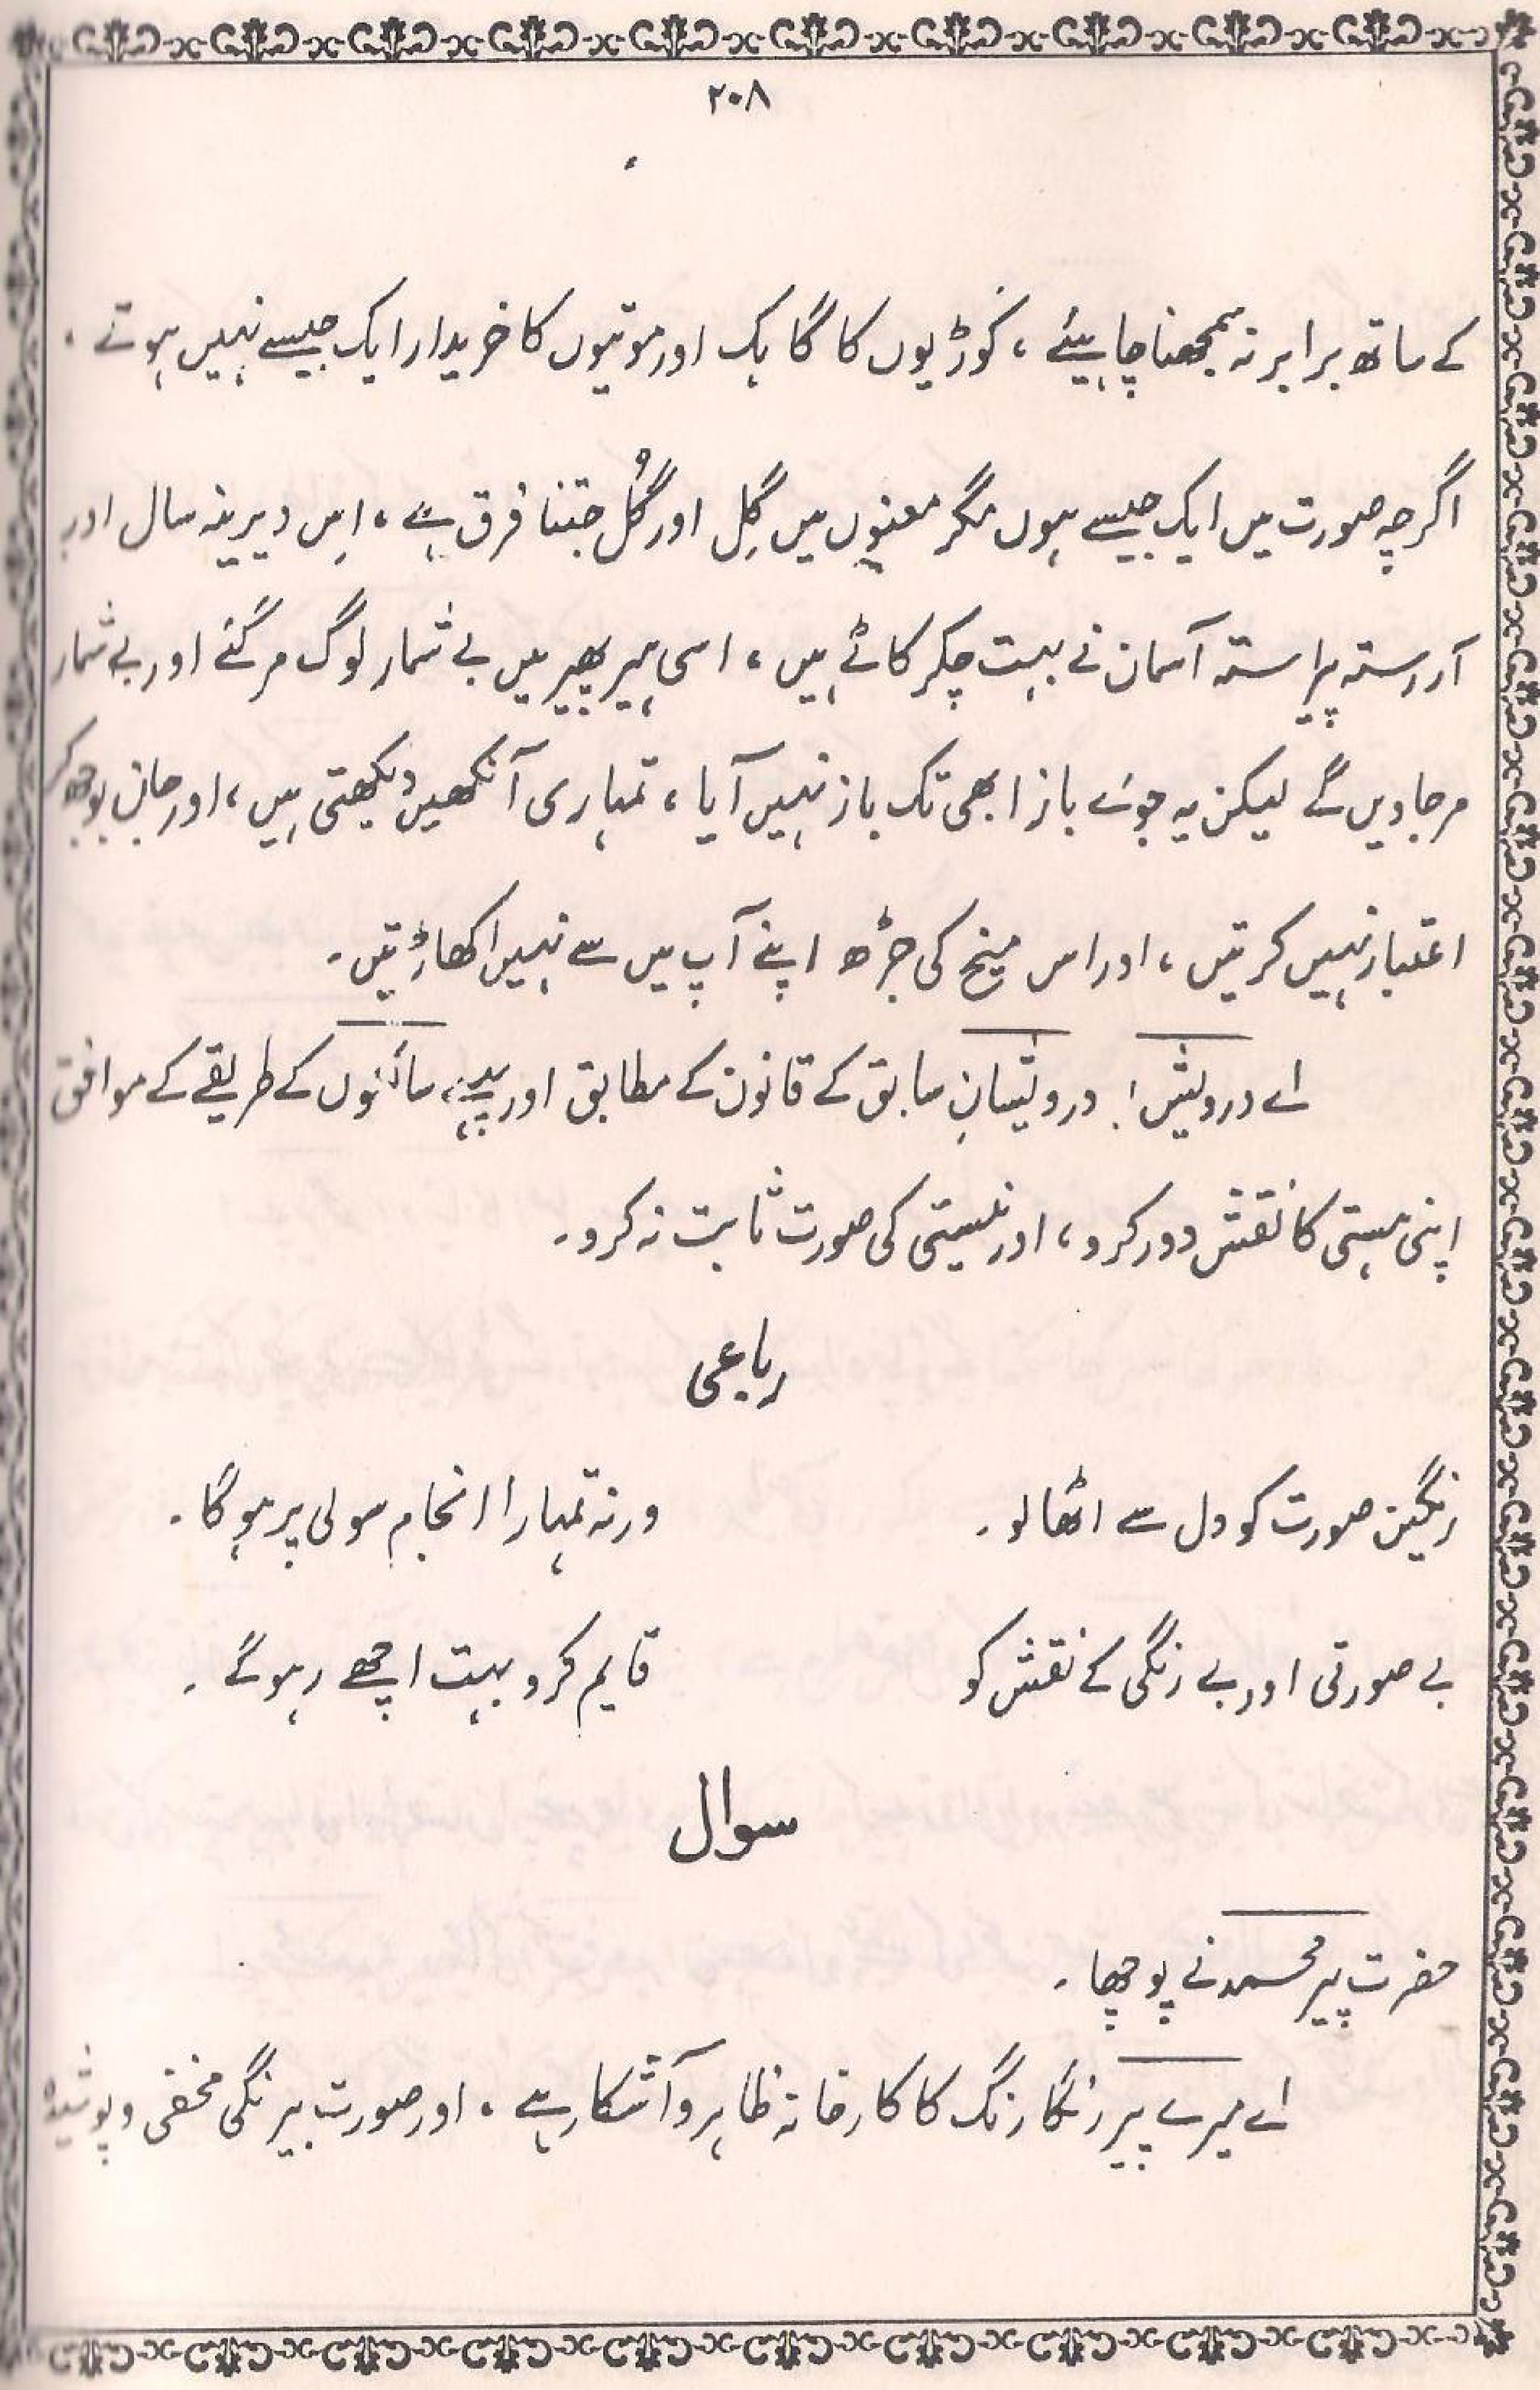 ۲۰۸
کے ساتھ برابر نہ سمجھنا چاہیئے ، کوڑیوں کا گاہک اور موتیوں کا خریدار ایک جیسے نہیں ہوتے ۔
اگرچہ صورت میں ایک جیسے ہوں مگر معنوں میں گِل اور گُل جتنا فرق ہے ، اِس دیرینہ سال اور
آرستہ پیراستہ آسمان نے بہت چکر کاٹے ہیں ، اسی ہیر پھیر میں بے شمار لوگ مر گئے اور بے شمار
مر جاویں گے لیکن یہ جوئے باز ابھی تک باز نہیں آیا ، تمہاری آنکھیں دیکھتی ہیں ، اور جان بوجھ کر
اعتبار نہیں کرتیں ، اور اس میخ کی جڑھ اپنے آپ میں سے نہیں اکھاڑتیں ۔
اے درویش ! درویشانِ سابق کے قانون کے مطابق اور پہلے سائیوں کے طریقے کے موافق
اپنی ہستی کا نقش دور کرو ، اور نیستی کی صورت ثابت نہ کرو ۔
رباعی
رنگین صورت کو دل سے اٹھا لو ۔ ورنہ تمہارا انجام سولی پر ہو گا ۔
بے صورتی اور بے رنگی کے نقش کو قایم کرو بہت اچھے رہو گے ۔
سوال
حضرت پیر محمد نے پوچھا ۔
اے میرے پیر رنگا رنگ کا کارخانہ ظاہر و آشکار ہے ، اور صورت بیرنگی مخفی و پوشیدہ